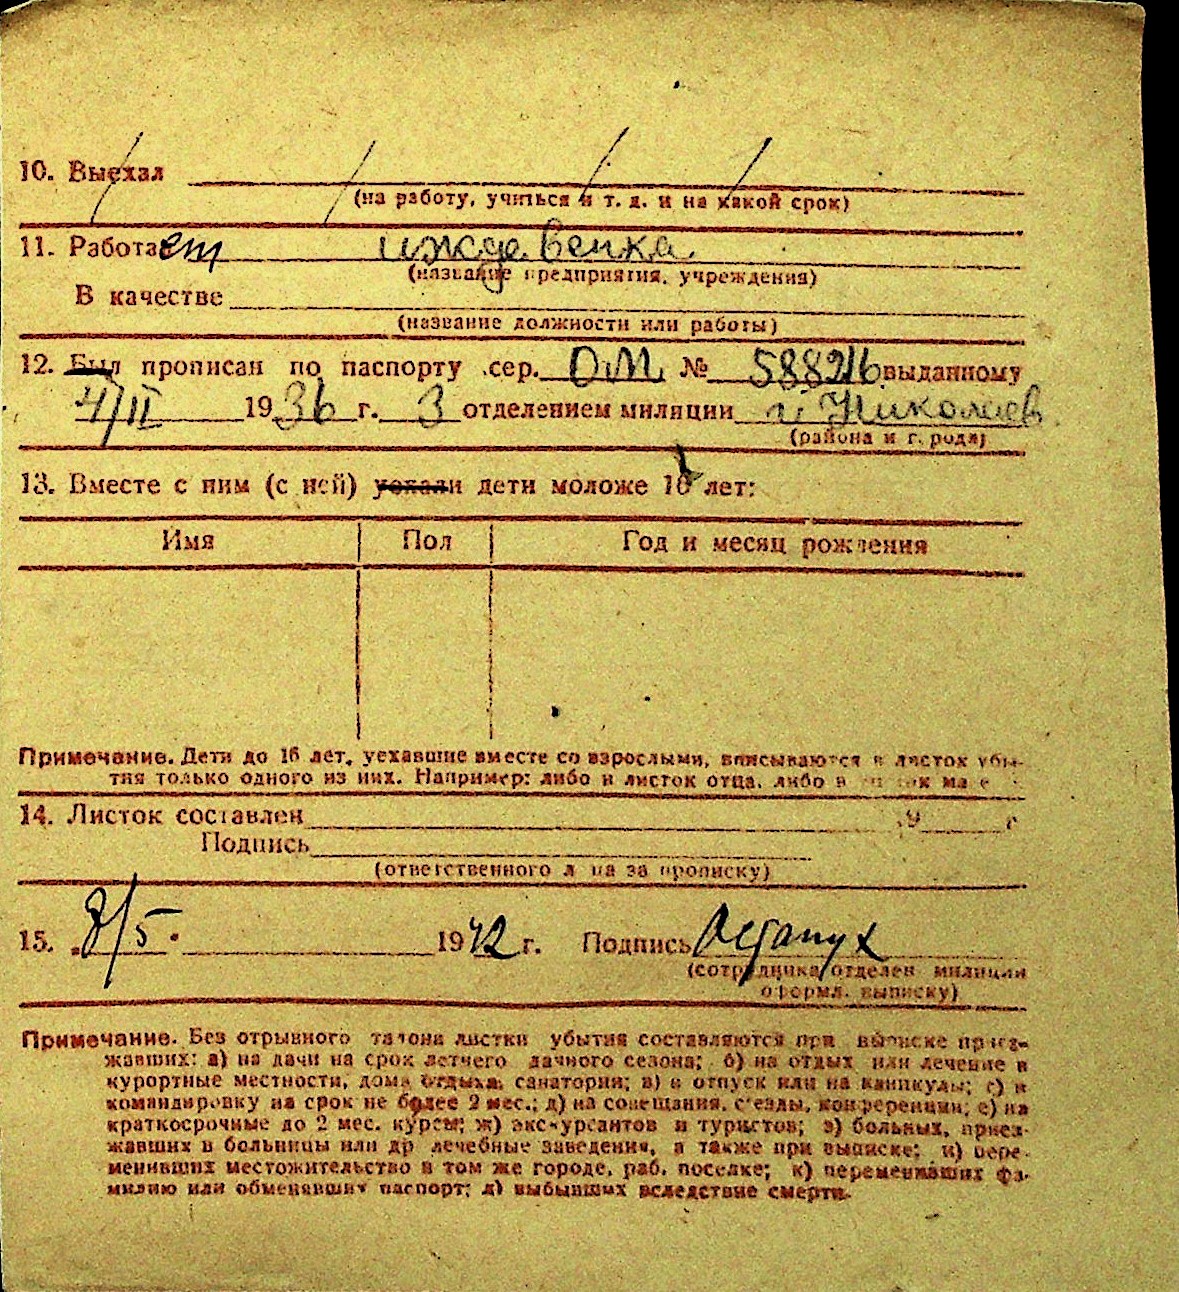 10. Выехал
(на работу, учиться и т. д. и на какой срок)
11. Работает иждевенка
(название предприятия, учреждения)
В качестве
(название должности или работы)
12. Был прописан по паспорту сер. ОМ № 588216 выданному
4/II 1936 г. 3 отделением милиции г. Николаев
(района и города)
13. Вместе с ним (с ней) уехали дети моложе 16 лет:
Имя Пол Год и месяц рождения
Примечание. Дети до 16 лет, уехавшие вместе со взрослыми, вписываются в листок убы-
тия только одного из них. Например: либо в листок отца, либо в
14. Листок составлен 19 г
Подпись
(ответственного лица за прописку)
15. „8/5" 1942 г. Подпись Остапух
(сотрудника отделен милиции
оформл. выписку)
Примечание. Без отрывного талона листки убытия составляются при выписке приез-
жавших: а) на дачи на срок летнего дачного сезона; б) на отдых или лечение в
курортные местности, дома отдыха, санатории; в) в отпуск или на каникулы; г) в
командировку на срок не более 2 мес.; д) на совещания, с'езды, конференции; е) на
краткосрочные до 2 мес. курсы; ж) экскурсантов и туристов; з) больных, приез-
жавших в больницы или др лечебные заведения, а также при выписке; и) пере-
менивших местожительство в том же городе, раб. поселке; к) переменивших фа-
милию или обменявших паспорт; л) выбывших вследствие смерти.